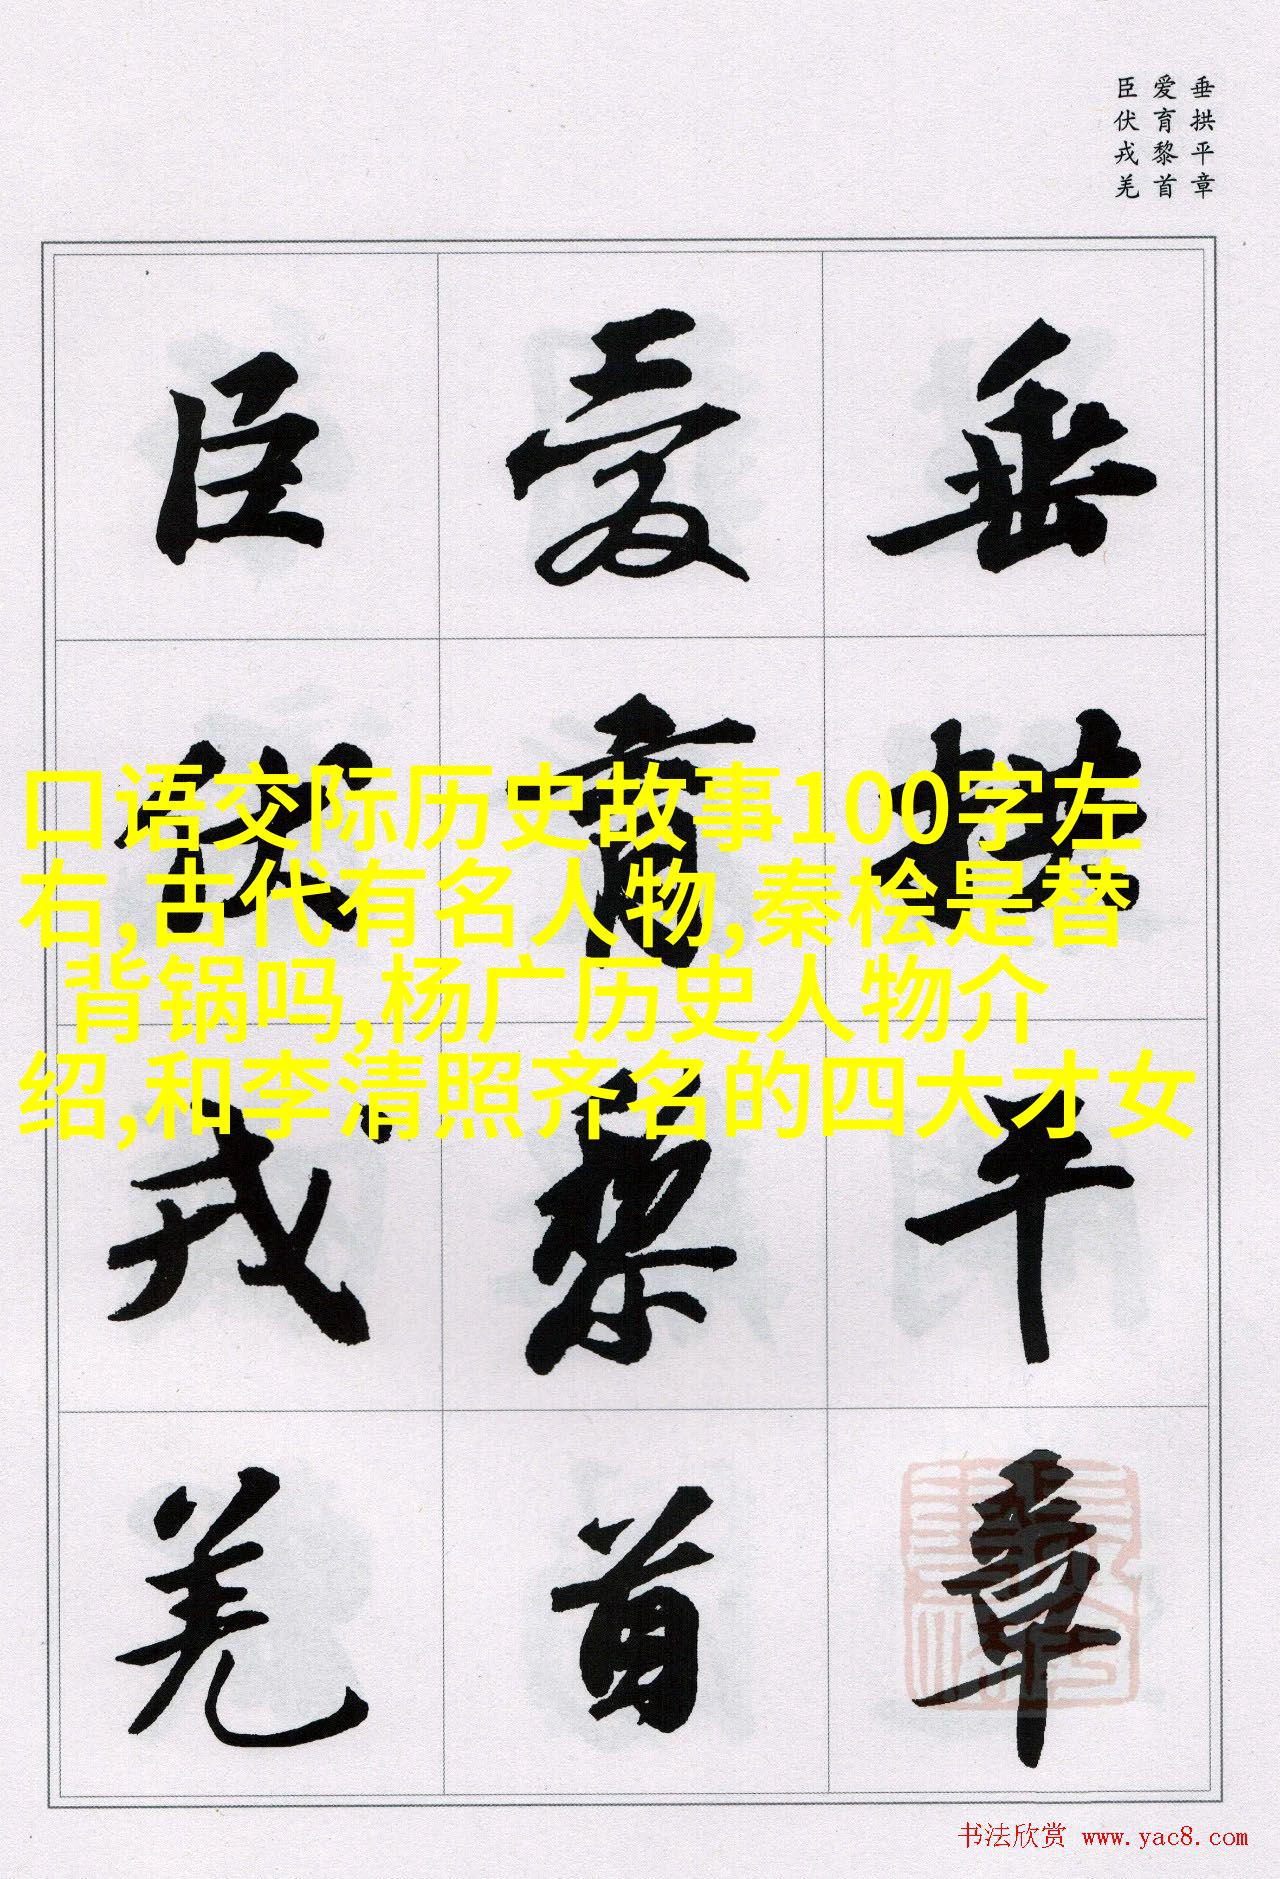 垂拱平章
爱育黎首
臣伏戎羌
垂拱平章
爱育黎首
臣伏戎羌
口语交际历史故事100字左
右,古代有名人物,秦桧是替
背锅吗,杨广历史人物介
绍,和李清照齐名的四大才女
书法欣赏 www.yac8.com